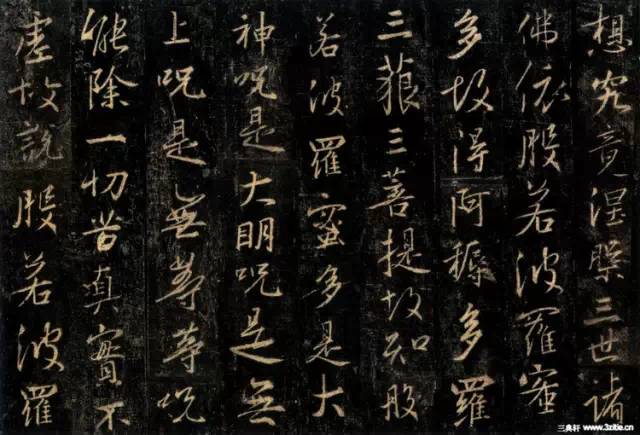 想究竟涅槃三世諸
佛依般若波羅蜜
多故得阿耨多羅
三藐三菩提故知般
若波羅蜜多是大
神呪是大明呪是無
上呪是無等等呪
能除一切苦真實不
虛故說般若波羅
三典轩 www.3zitie.cn